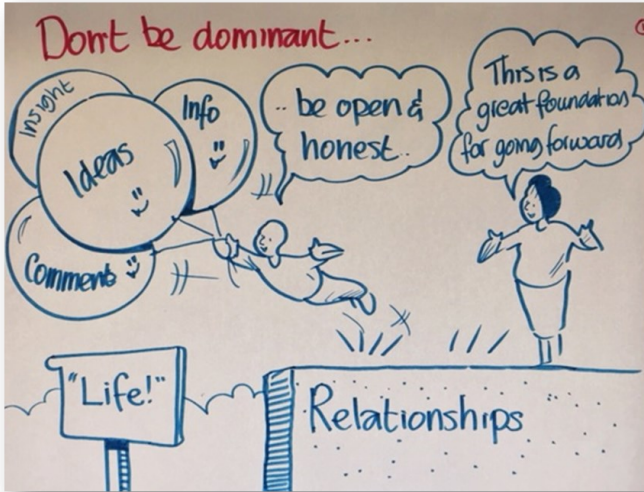 Don't be dominant...
Insight
Info
Ideas
Comment
.. be open &
honest..
This is a
great foundation
for going forward
"Life!"
Relationships